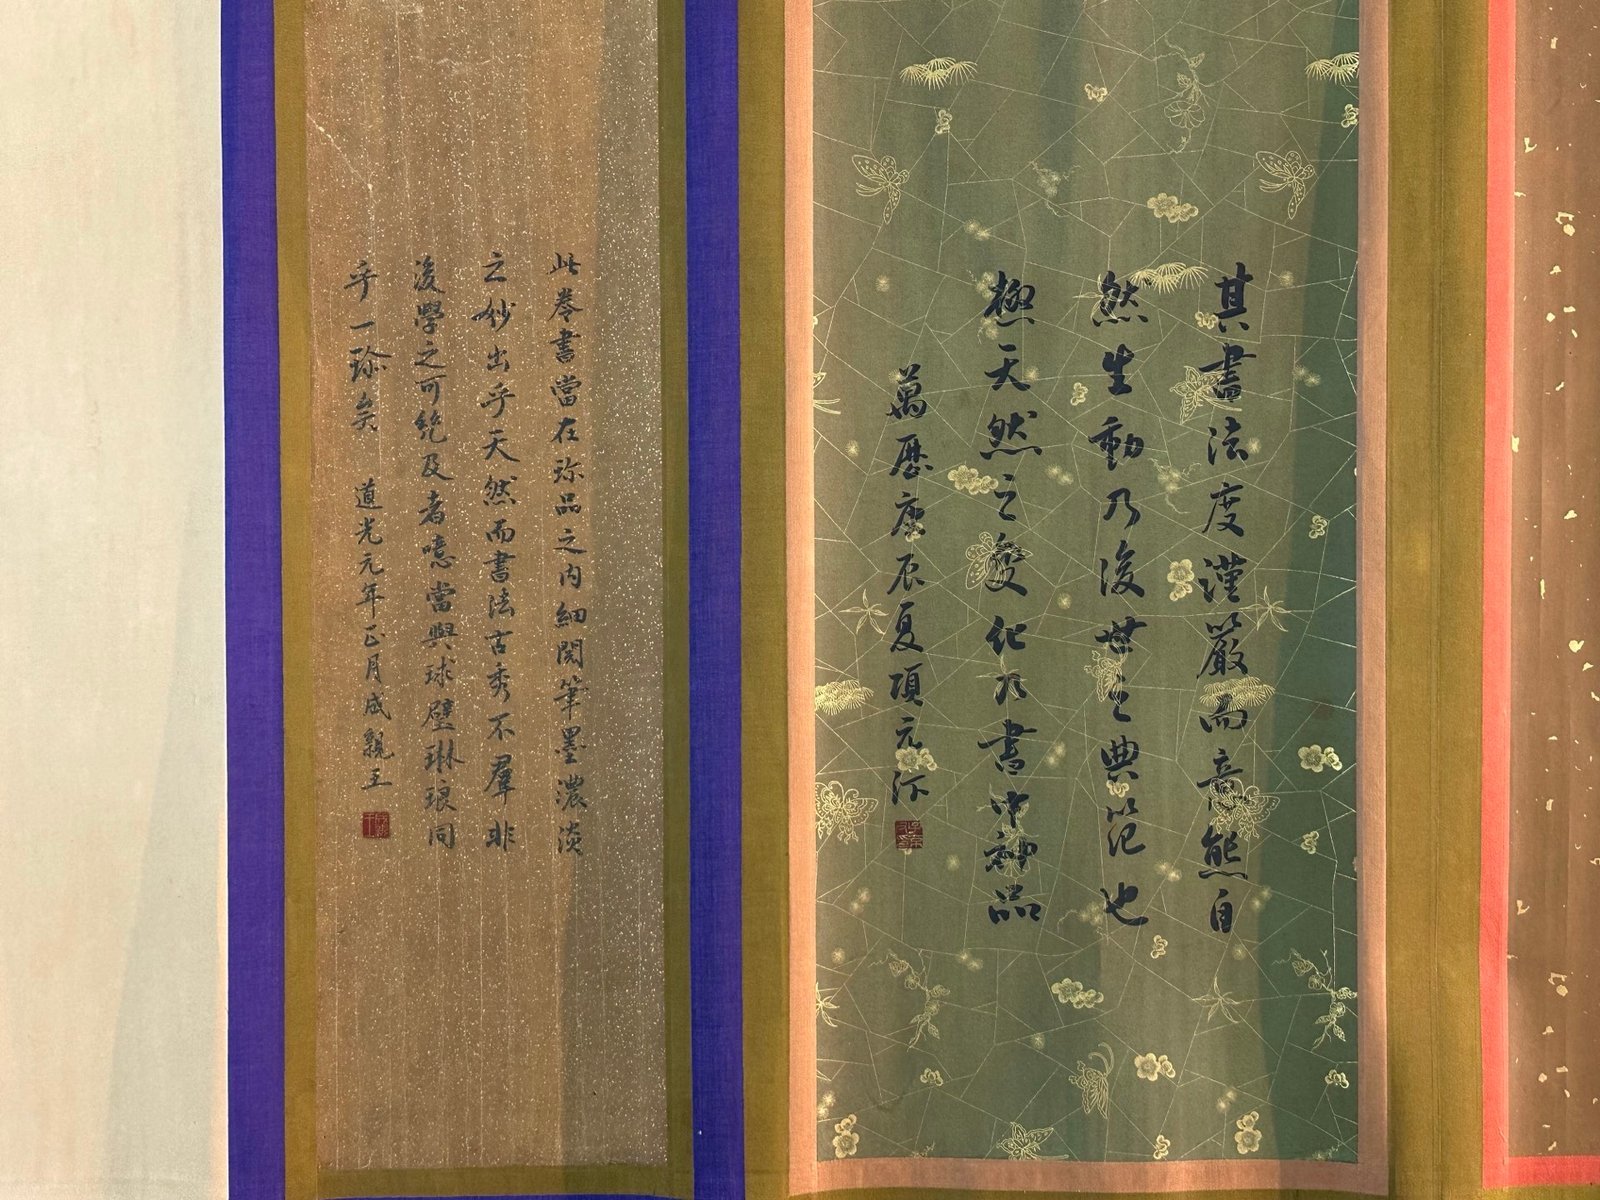 其書法度謹嚴而意態自
然生動乃後世之典范也
極天然之變化乃書中神品
萬歷庚辰夏項元汴
此卷書當在珎品之内細閱筆墨濃淡
之妙出乎天然而書法古秀不羣非
後學之可能及者噫當與球璧琳琅同
乎一珎矣 道光元年正月成親王